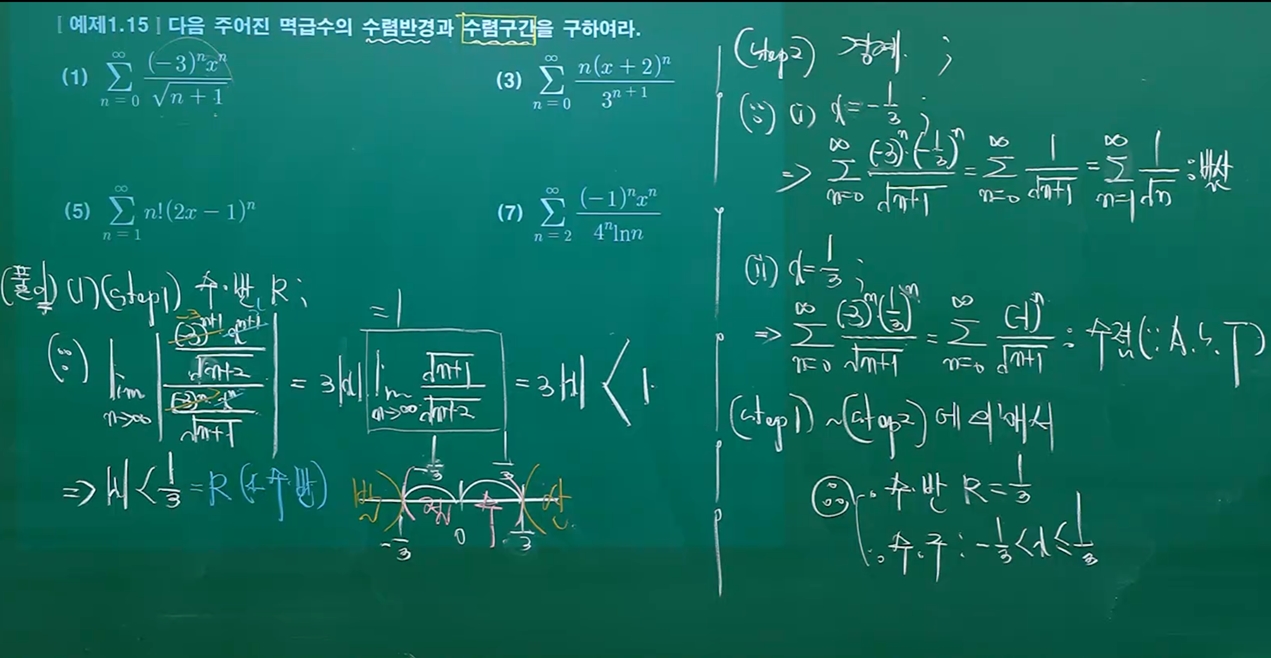 [ 예제1.15 ] 다음 주어진 멱급수의 수렴반경과 수렴구간을 구하여라.
(1) \sum_{n=0}^{∞} \frac{(-3)^n x^n}{\sqrt{n+1}}
(3) \sum_{n=0}^{∞} \frac{n(x+2)^n}{3^{n+1}}
(5) \sum_{n=1}^{∞} n!(2x-1)^n
(7) \sum_{n=2}^{∞} \frac{(-1)^n x^n}{4^n \ln n}
(풀이) (1) (step1) 수·반 R ;
(∵) \lim_{n→∞} \left| \frac{\frac{(-3)^{n+1} \cdot x^{n+1}}{\sqrt{n+2}}}{\frac{(-3)^n \cdot x^n}{\sqrt{n+1}}} \right| = 3|x| \lim_{n→∞} \frac{\sqrt{n+1}}{\sqrt{n+2}} = 3|x| < 1
= 1
⇒ |x| < \frac{1}{3} = R (수·반)
-\frac{1}{3} \frac{1}{3}
발 수 산
-\frac{1}{3} 0 \frac{1}{3}
(step2) 경계 ;
(∵) (i) x = -\frac{1}{3} ;
⇒ \sum_{n=0}^{∞} \frac{(-3)^n \cdot (-\frac{1}{3})^n}{\sqrt{n+1}} = \sum_{n=0}^{∞} \frac{1}{\sqrt{n+1}} = \sum_{n=1}^{∞} \frac{1}{\sqrt{n}} : 발산
(ii) x = \frac{1}{3} ;
⇒ \sum_{n=0}^{∞} \frac{(-3)^n (\frac{1}{3})^n}{\sqrt{n+1}} = \sum_{n=0}^{∞} \frac{(-1)^n}{\sqrt{n+1}} : 수렴 (∵ A.S.T)
(step1) ~ (step2) 에 의해서
∴ 수·반 R = \frac{1}{3}
수·구 : -\frac{1}{3} < x ≤ \frac{1}{3}